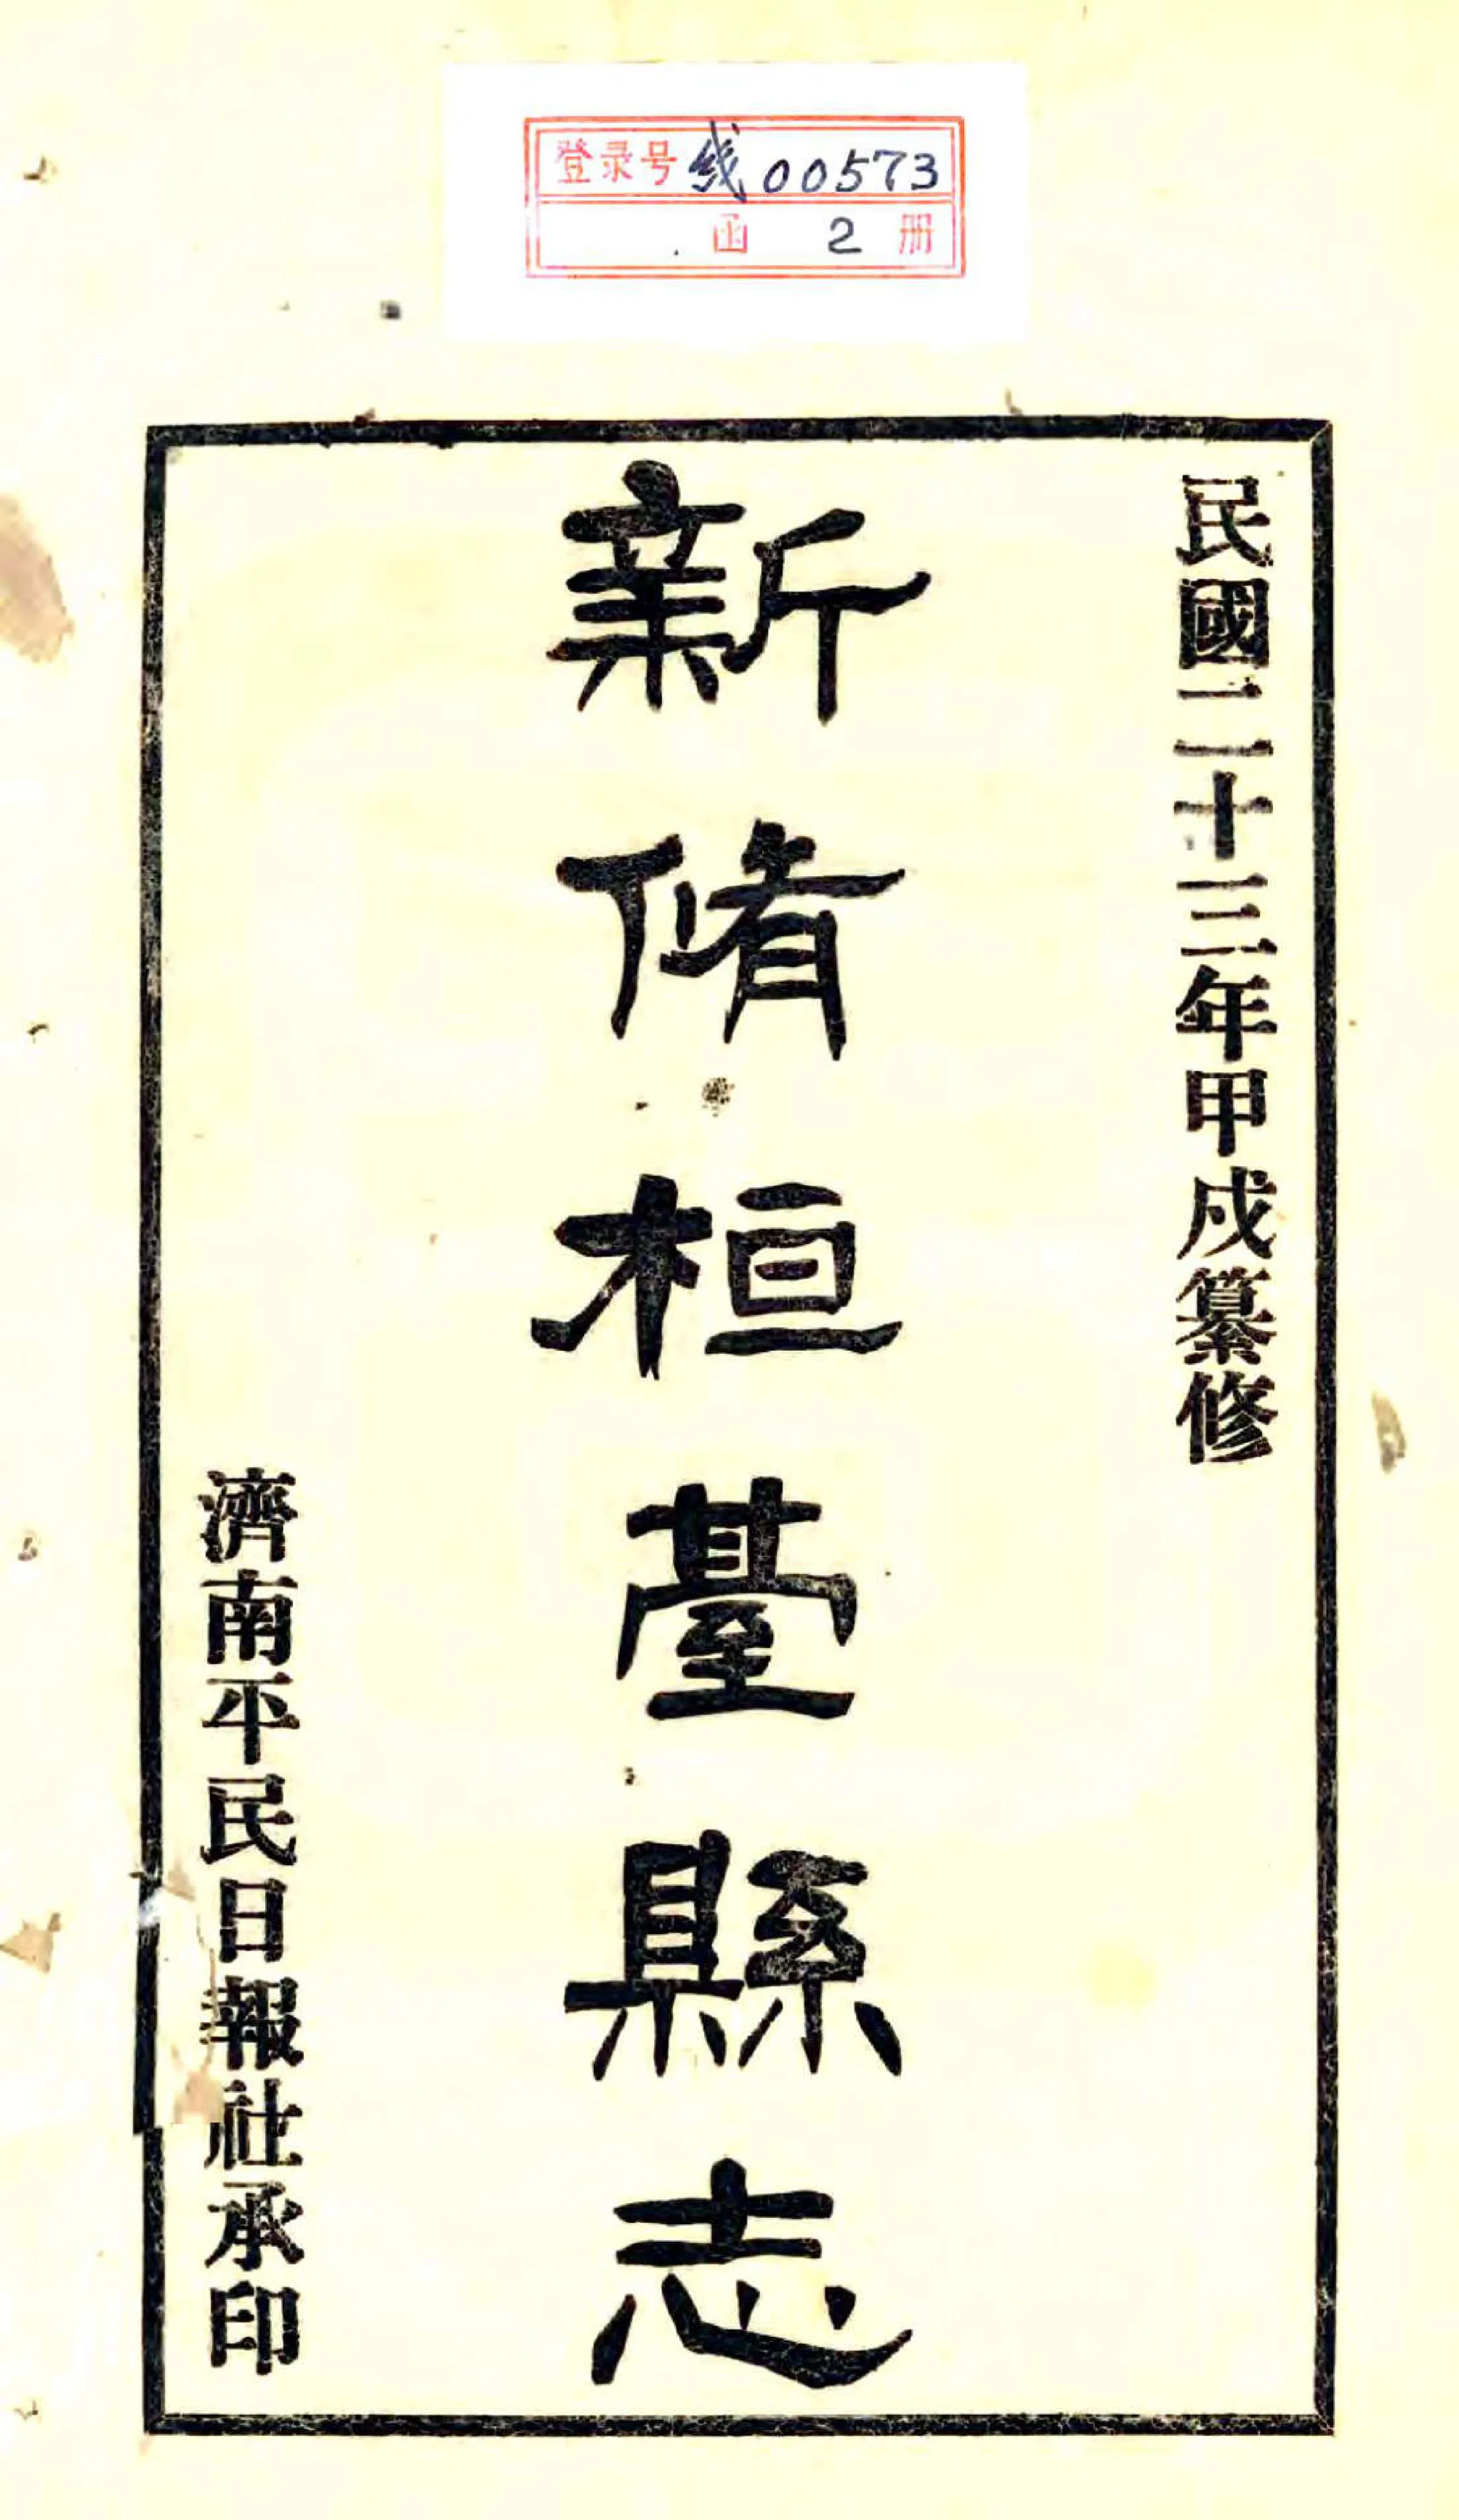 登录号 线00573
函 2 册
民國二十三年甲戌纂修
新脩桓臺縣志
濟南平民日報社承印